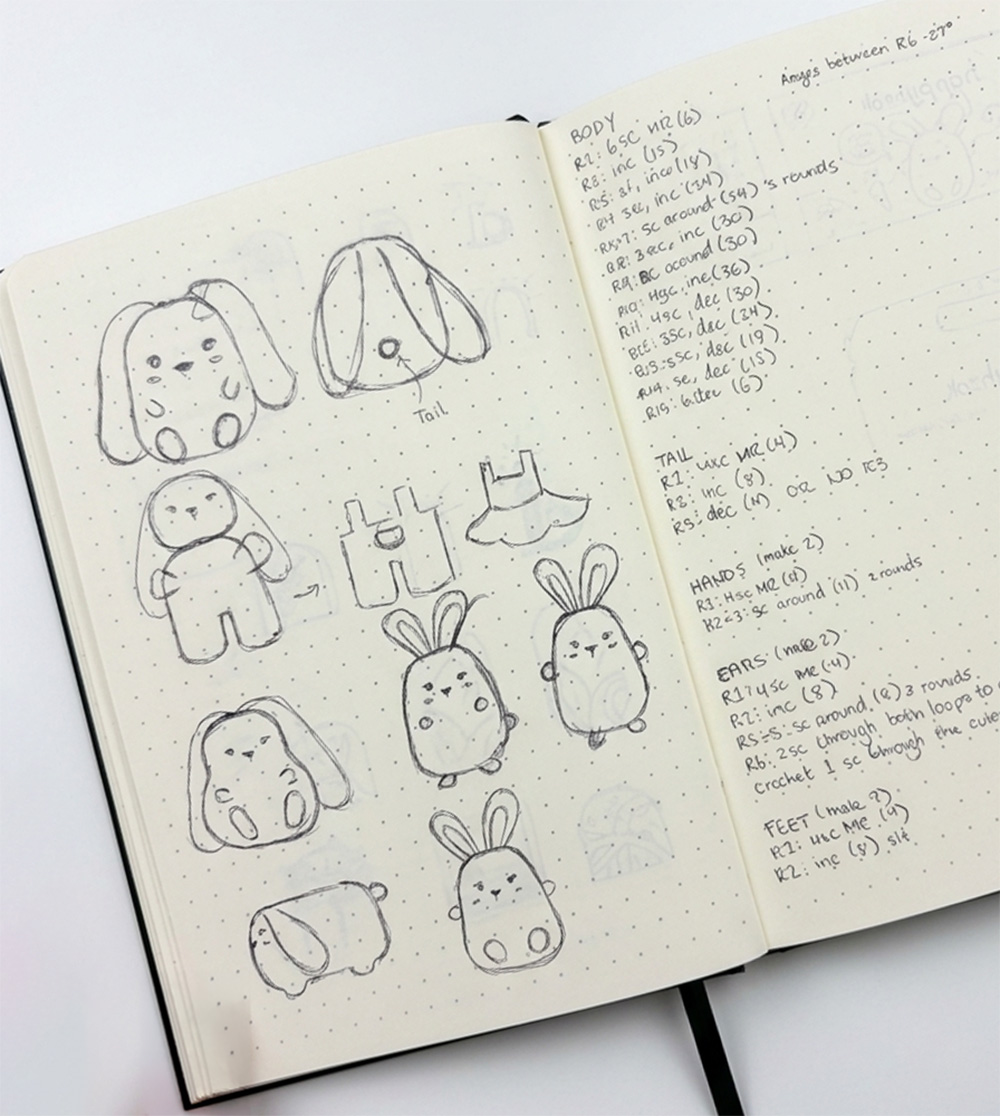 Tail
Anges between R6 -27°
BODY
R2: 6SC MR (6)
R8: inc (15)
RS: 3f, inco (18)
R4 3ec, inc (24)
RK>7: SC around (54) 's rounds
BR: 3ec, inc (30)
R9: BC around (30)
R10: Hgc, inc (36)
R11. 4sc, dec (30)
BCE: 3SC, dec (24)
B13: sSC, dec (19)
R14. se, dec (15)
R19: 6itec (6)
TAIL
R1: MR (4)
R8: inc (8)
RS: dec (4) OR NO
HANDS (make 2)
R3: Hsc MR (4)
K2<3: SC around (11) 2 rounds
EARS (make 2)
R1? 4SC MR (4)
R2: inc (8)
RS-S: SC around (a) 3 rounds.
R6: 2SC through both loops to
crochet 1 sc through the cute
FEET (make 2)
R1: MR (4)
R2: inc (8) slt